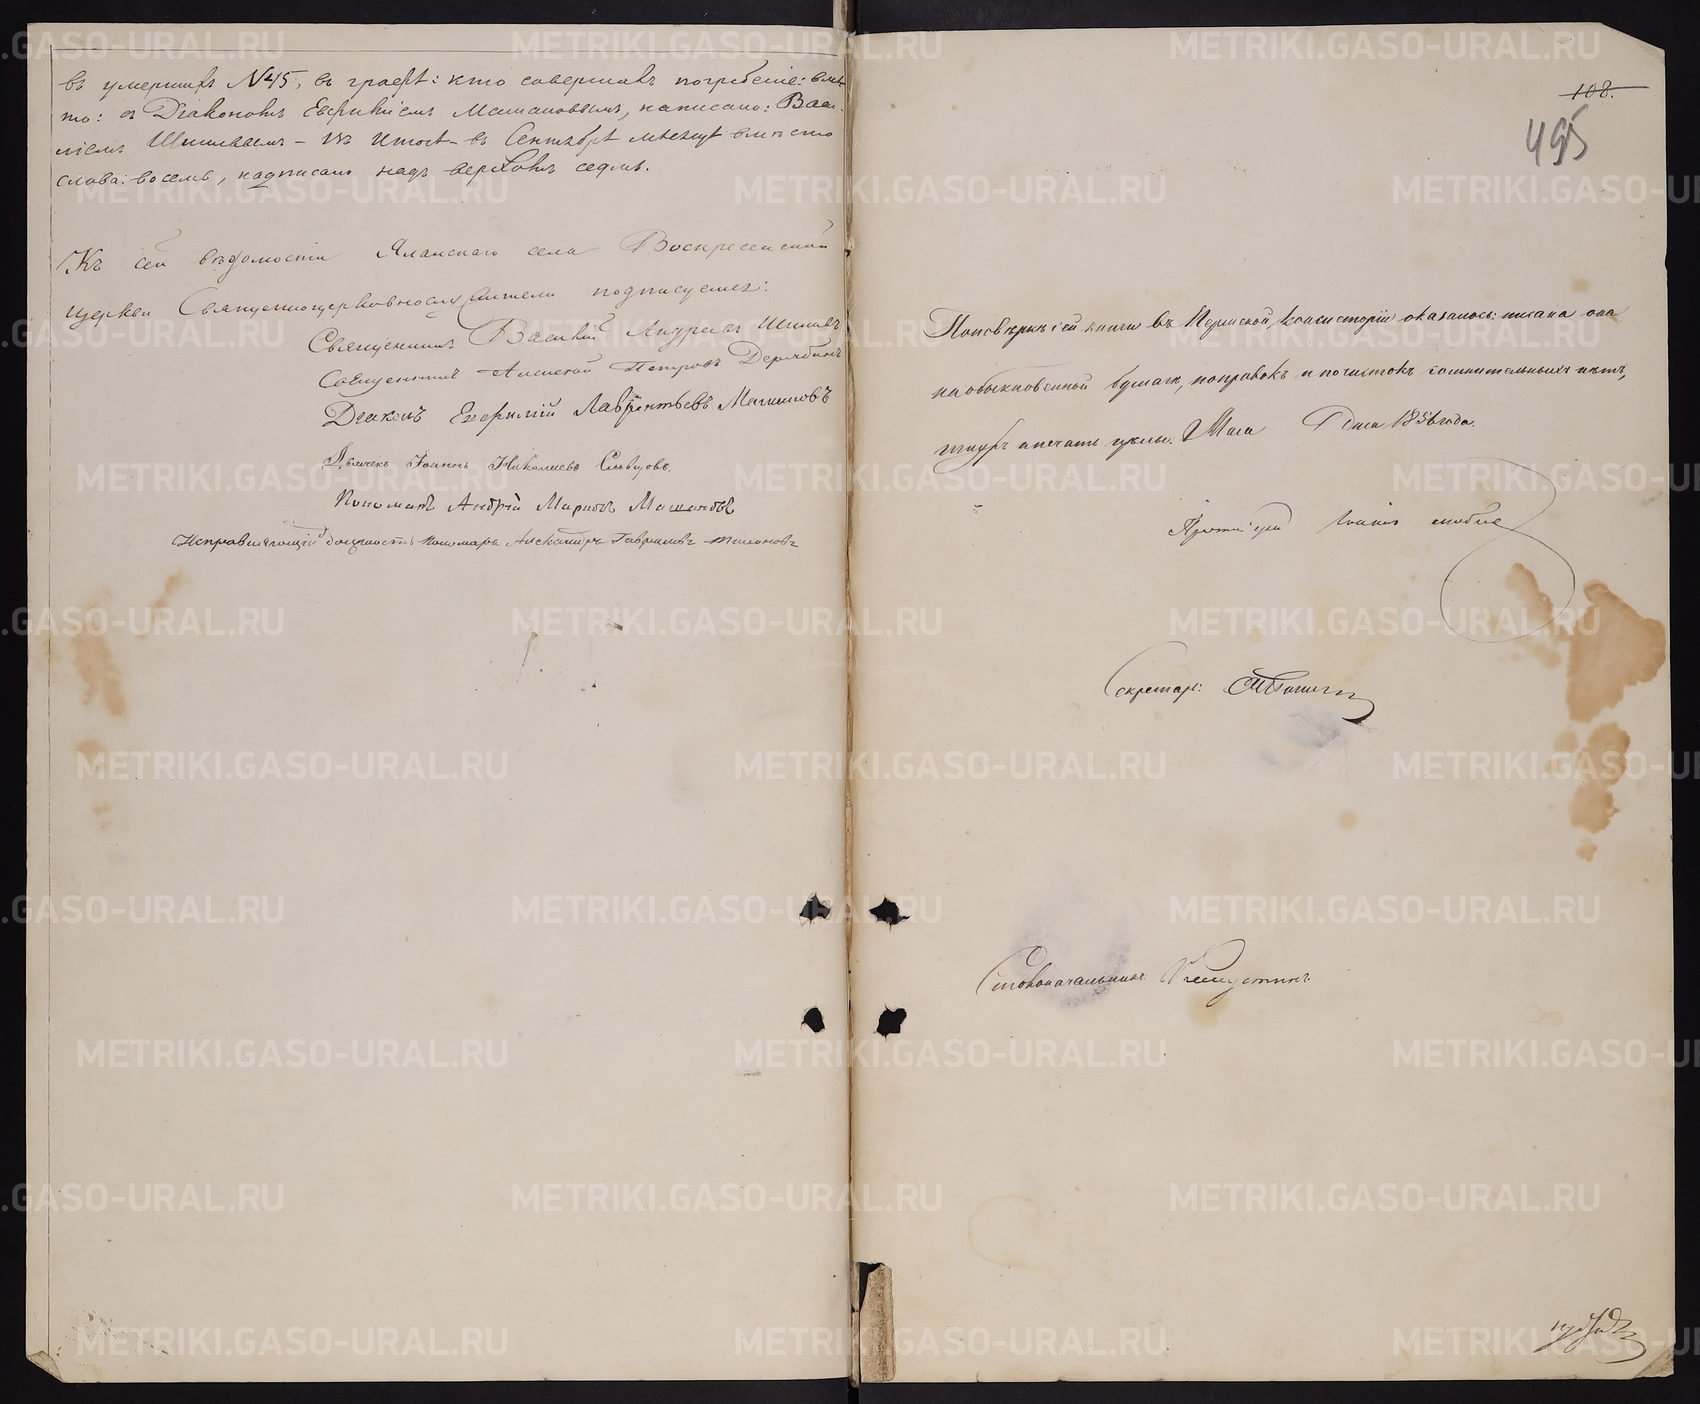 въ умершихъ № 45, въ графѣ: кто совершалъ погребеніе: вмѣс-
то: съ Діакономъ Евфиміемъ Машановымъ, написано: Васи-
ліемъ Шишевымъ – въ итогѣ – въ Сентябрѣ мѣсяцѣ вмѣсто
слова: восемь, надписано надъ верхомъ седмь.
Къ сей вѣдомости Яланскаго села Воскресенской
церкви Священноцерковнослужители подписуемся:
Священникъ Василій Андреевъ
Священникъ Алексѣй Петровъ Дерябинъ
Діаконъ Евфимій Лаврентьевъ Машановъ
Дьячекъ Іоаннъ Николаевъ Словцовъ.
Пономарь Андрей Марковъ Машановъ
Исправляющій должность пономаря Александръ Гавриловъ
108.
495
По повѣркѣ сей книги въ Пермской Консисторіи оказалось: писана она
на обыкновенной бумагѣ, поправокъ и почистокъ сомнительныхъ нѣтъ,
шнуръ и печать цѣлы. Мая дня 1856 года.
Протоіерей Іоаннъ
Секретарь:
Столоначальникъ
METRIKI.GASO-URAL.RU